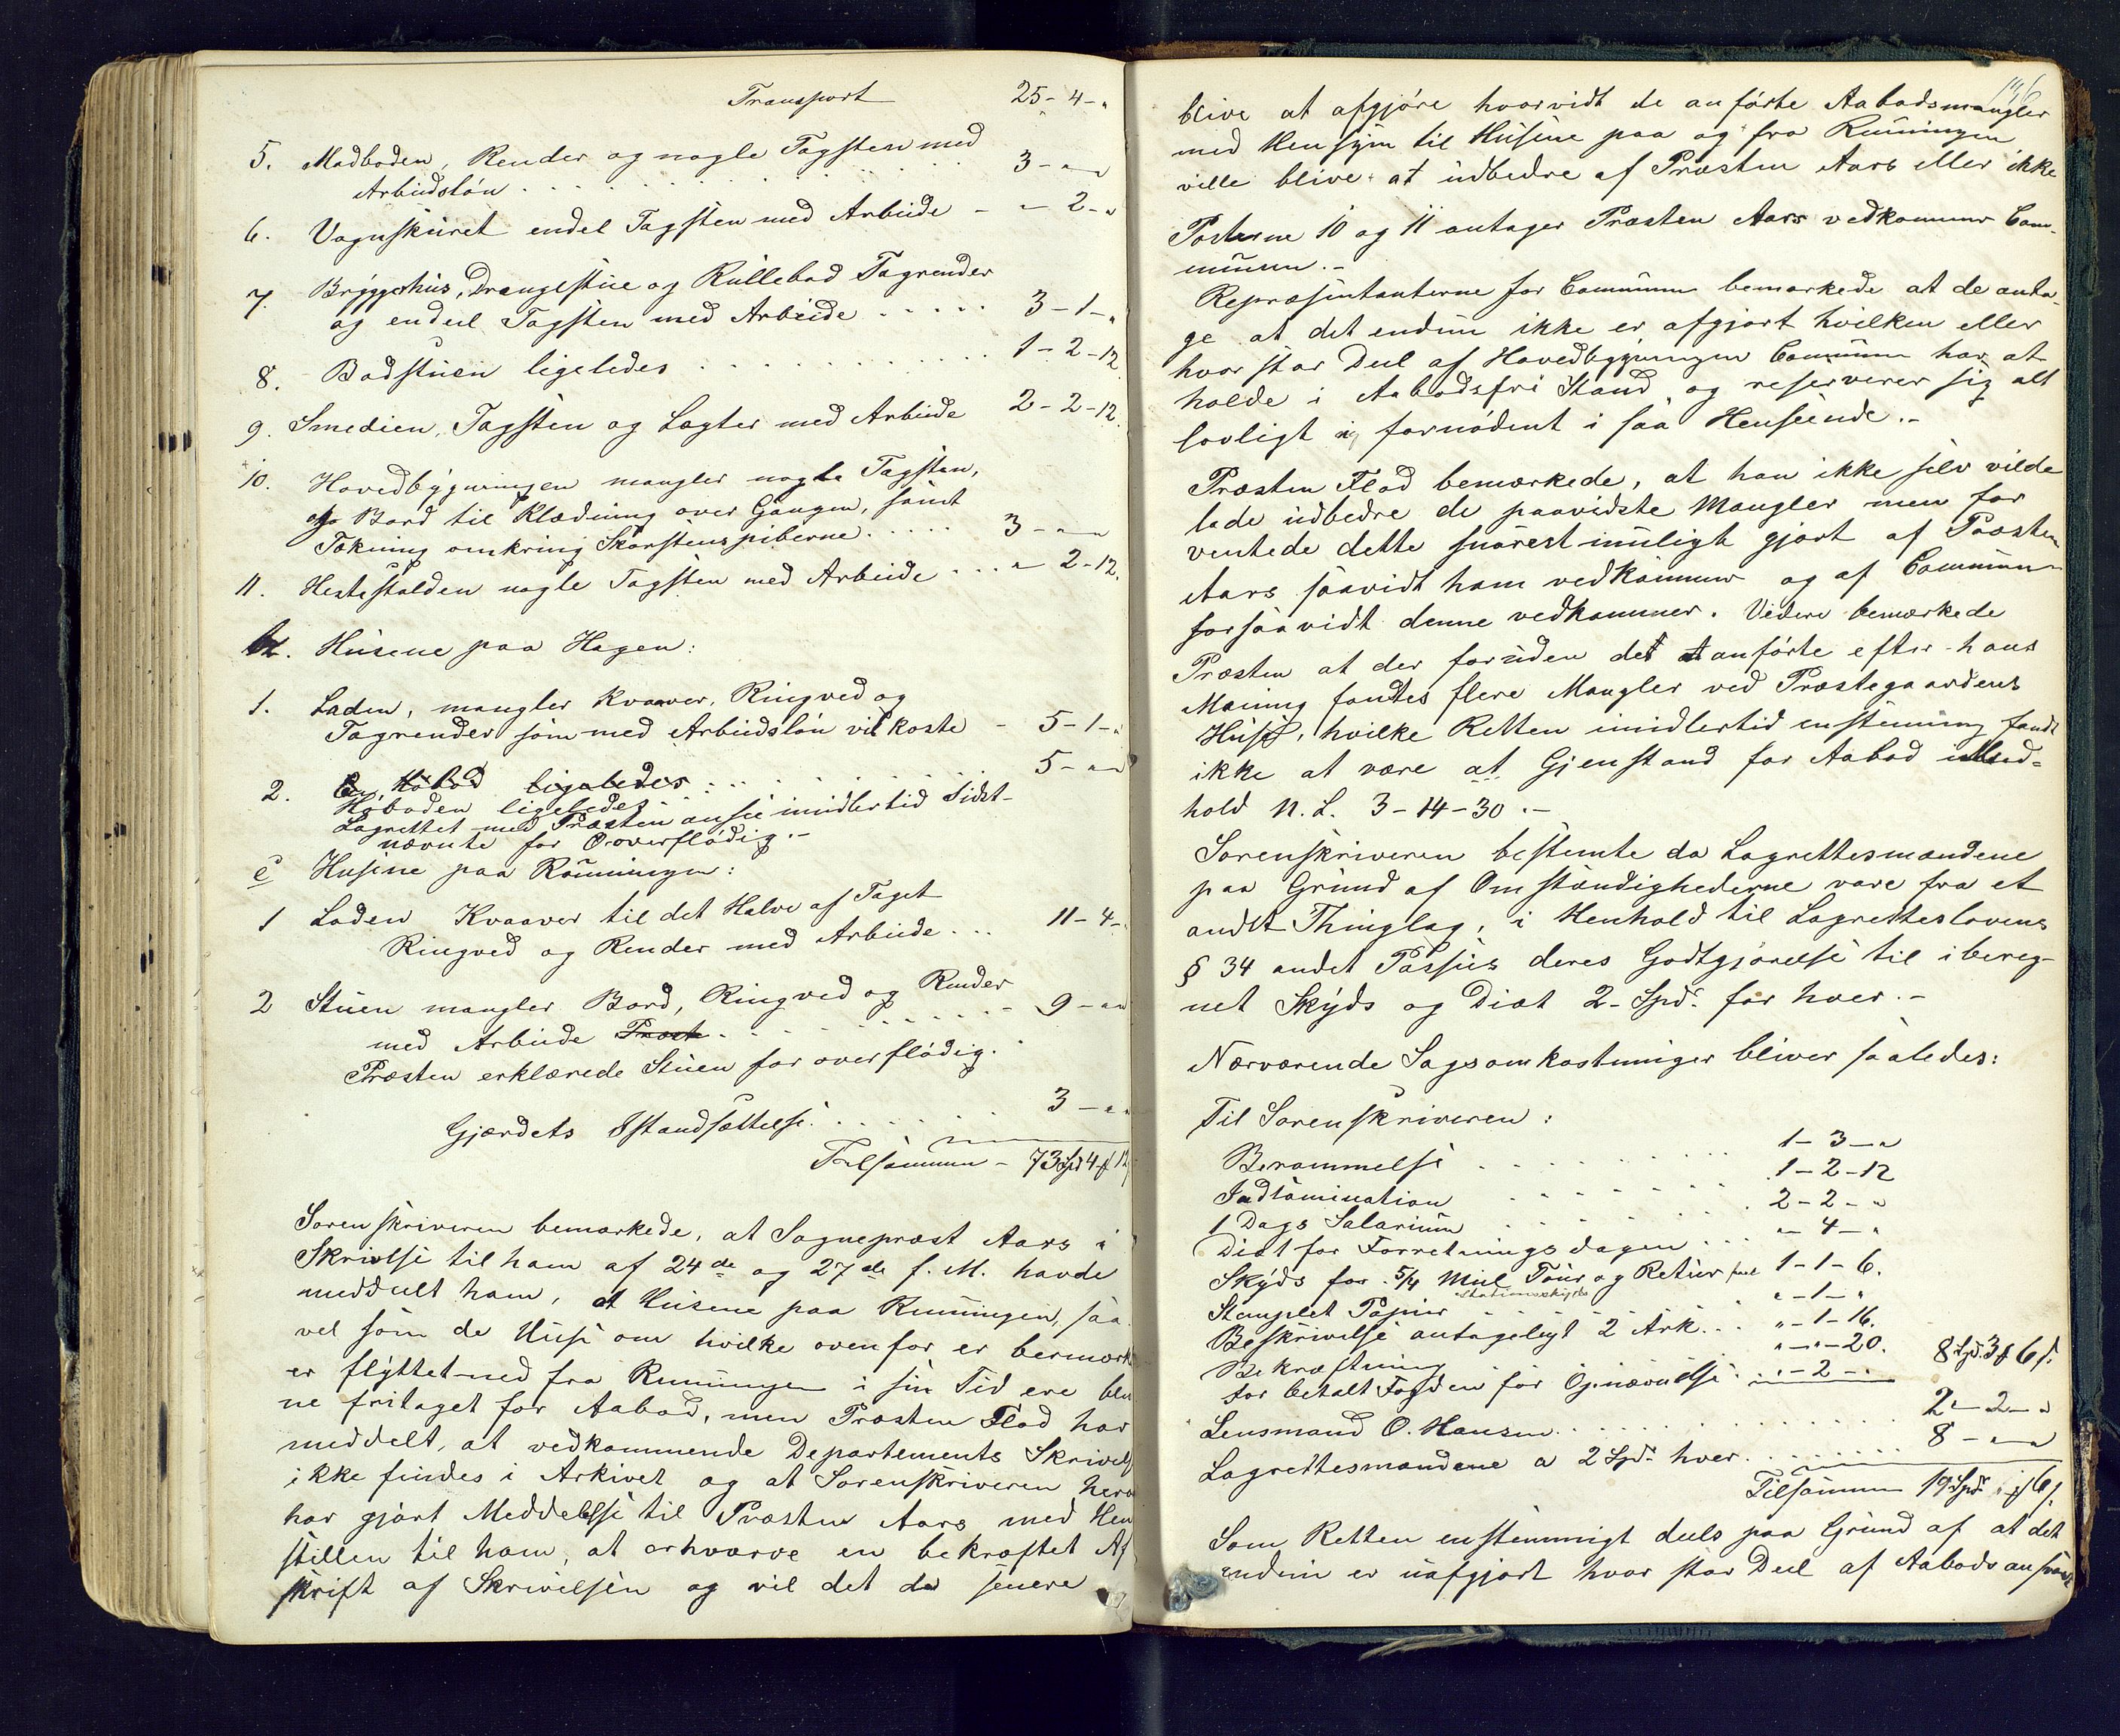 Transport 25 - 4 - "
5. Madboden, Render og nogle Tagsten med
Arbeidsløn . . . . . . . . . . 3 - " - "
6. Vognskuret endel Tagsten med Arbeide - " - 2 - "
7. Bryggerhus, Drengestue og Rullebod Tagrender
og endeel Tagsten med Arbeide . . . . . 3 - 1 - "
8. Badstuen ligeledes . . . . . . . . . . 1 - 2 - 12
9. Smedien, Tagsten og Lægter med Arbeide 2 - 2 - 12.
10. Hovedbygningen mangler nogle Tagsten,
Bord til Klædning over Gangen, samt
Tækning omkring Skorstenspiberne . . . . . 3 - " - "
11. Hestestalden nogle Tagsten med Arbeide . . . " - 2 - 12.
b. Husene paa Hagen:
1. Laden, mangler Kvaaver, Ringved og
Tagrender som med Arbeidsløn vil koste - 5 - 1 - "
2. Høbod ligeledes . . . . . . . . . 5 - " - "
Høboden ligeledes
Lagrettet med Præsten ansee imidlertid sidst-
nævnte for Overflødig. -
c Husene paa Rønningen:
1 Laden Kvaaver til det Halve af Taget
Ringved og Render med Arbeide . . . 11 - 4 - "
2 Stuen mangler Bord, Ringved og Render
med Arbeide Præst . . . . . . . . - 9 - " - "
Præsten erklærede Stuen for overflødig.
Gjærdets Istandsættelse . . . . . . 3 - " - "
Tilsammen - 73 Spd 4 # 12
Sorenskriveren bemærkede, at Sognepræst Aars i
Skrivelse til ham af 24de og 27de f. M. havde
meddeelt ham, at Husene paa Rønningen, saa
vel som de Huse om hvilke ovenfor er bemærk
er flyttet ned fra Rønningen i sin Tid ere ble
ne fritaget for Aabod, men Præsten Flod har
meddelt, at vedkommende Departements Skrivels
ikke findes i Arkivet og at Sorenskriveren
har gjort Meddelelse til Præsten Aars med Hen
stillen til ham, at erhværve en bekræftet Af
skrift af Skrivelsen og vil det da senere
blive at afgjøre hvorvidt de anførte Aabodsmangler
med Hensyn til Husene paa og fra Rønningen
ville blive at udbedre af Præsten Aars eller ikke
Posterne 10 og 11 antager Præsten Aars vedkommer Com-
munen. -
Repræsentanterne for Communen bemærkede at de anta-
ge at det endnu ikke er afgjort hvilken eller
hvor stor Deel af Hovedbygningen Communen har at
holde i Aabodsfri Stand, og reserverer sig alt
lovligt og fornødent i saa Henseende. -
Præsten Flod bemærkede, at han ikke selv vilde
lade udbedre de paaviste Mangler men for
ventede dette snarest muligt gjort af Præsten
Aars saavidt ham vedkommer og af Communen
forsaavidt denne vedkommer. Videre bemærkede
Præsten at der foruden det anførte efter hans
Mening fandtes flere Mangler ved Præstegaardens
Huse, hvilke Retten imidlertid enstemmig fandt
ikke at være at Gjenstand for Aabod i Med-
hold N. L. 3 - 14 - 30. -
Sorenskriveren bestemte da Lagrettesmændene
paa Grund af Omstændighederne vare fra et
andet Thinglag, i Henhold til Lagretteslovens
§ 34 andet Passus deres Godtgjørelse til ibereg-
net Skyds og Diæt 2 Spd. for hver. -
Nærværende Sagsomkostninger bliver saaledes:
Til Sorenskriveren:
Berammelse . . . . . . . . . 1 - 3 - "
Indlamination . . . . . . . . 1 - 2 - 12
1 Dags Salarium . . . . . . . 2 - 2 - "
Diæt for Forretningsdagen . . . " - 4 - "
Skyds for 5/4 Miil Tour og Retur 1 - 1 - 6.
Stationsskyds
Stemplet Papiir . . . . . . . " - 1 - "
Beskrivelse antageligt 2 Ark . . . " - 1 - 16.
Bekræftning " - " - 20.
for betalt Fogden for Opnævnelse . " - 2 - " 8 Spd. 3 # 6 s.
Lensmand O. Hansen . . . . . . . . . . . 2 - 2 - "
Lagrettesmændene a 2 Spd. hver . . . . . . 8 - " - "
Tilsammen 19 Spd. " # 6 s.
Som Retten enstemmigt deels paa Grund af at det
endnu er uafgjort hvor stor Deel af Aabodsansvar